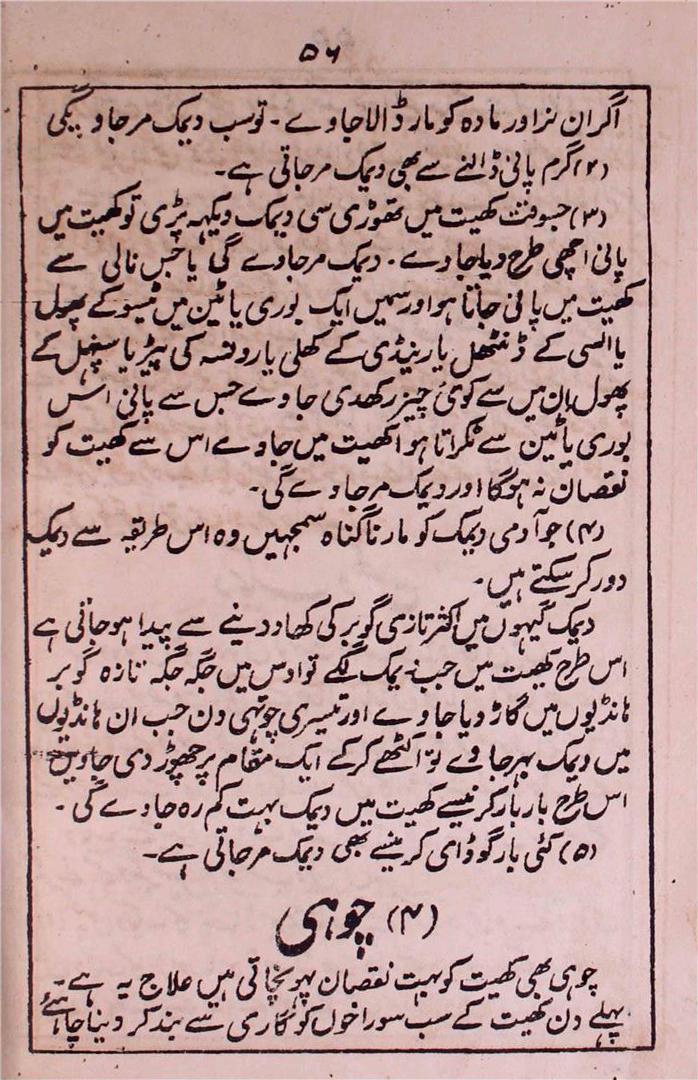 ۵۶
اگر ان نر اور مادہ کو مار ڈالا جاوے - تو سب دیمک مر جاویگی
(۲) گرم پانی ڈالنے سے بھی دیمک مر جاتی ہے -
(۳) جسوقت کھیت میں تھوڑی سی دیمک دیکہہ پڑی تو کھیت میں
پانی اچھی طرح دیا جاوے - دیمک مر جاوے گی یا جس نالی سے
کھیت میں پانی جاتا ہو اور سمیں ایک بوری یا ٹین میں ٹیسو کے پھول
یا السی کے ڈنٹھل یا رینڈی کے کھلی یا کی پیڑ یا سینہل کے
پھول ان میں سے کوئی چیز رکھدی جاوے جس سے پانی اس
بوری یا ٹین سے ٹکراتا ہوا کھیت میں جاوے اس سے کھیت کو
نقصان نہ ہوگا اور دیمک مر جاوے گی -
(۴) جو آدمی دیمک کو مارنا گناہ سمجہیں وہ اس طریقہ سے دیمک
دور کر سکتے ہیں -
دیمک گیہوں میں اکثر تازی گوبر کی کھاد دینے سے پیدا ہو جاتی ہے
اس طرح کھیت میں جب دیمک لگے تو اوس میں جگہ جگہ تازہ گوبر
ہانڈیوں میں گاڑ دیا جاوے اور تیسری چوتہی دن جب ان ہانڈیوں
میں دیمک بہر جاوے تو اکٹھے کر کے ایک مقام پر چھوڑ دی جاویں
اس طرح بار بار کرنیسے کھیت میں دیمک بہت کم رہ جاوے گی -
(۵) کئی بار گوڈای کرنیسے بھی دیمک مر جاتی ہے -
(۴) چوہی
چوہی بھی کھیت کو بہت نقصان پہونچاتی ہیں علاج یہ ہے -
پہلے دن کھیت کے سب سوراخوں کو گاری سے بند کر دینا چاہئے